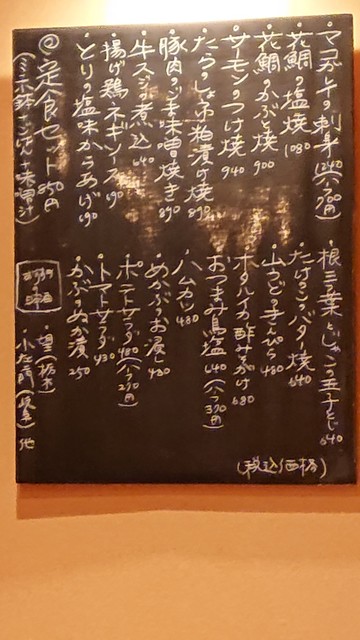 ・マコガレイの刺身 1240 (ハーフ700円)
・花鯛の塩焼 1080
・花鯛かぶと焼 900
・サーモンのつけ焼 940
・たらのしょうゆ粕漬け焼 890
・豚肉の味噌焼き 890
・牛スジの煮込 640
・揚げ鶏ネギソース 690
・とりの塩味からあげ 690
◎定食セット 850円
(ミニ小鉢+ごはん+味噌汁)
・根三つ葉とじゃこの玉子とじ 640
・たけのこのバター焼 640
・山うどのきんぴら 480
・ホタルイカ酢みそがけ 680
・おつまみ鳥塩 640 (ハーフ370円)
・ハムカツ 480
・めかぶのお浸し 430
・ポテトサラダ 480 (ハーフ270円)
・トマトサラダ 430
・かぶのぬか漬 250
・望 (栃木)
小左衛門 (岐阜) 他
(税込価格)